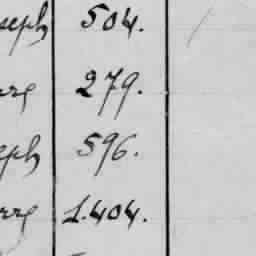 seph 504.
rre 279.
eph 596.
rre 1.404.